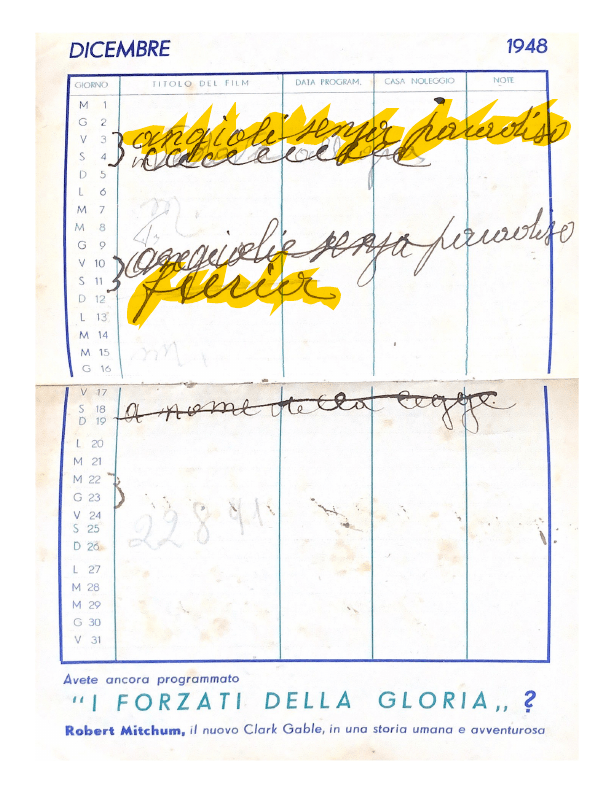 DICEMBRE 1948
GIORNO TITOLO DEL FILM DATA PROGRAM. CASA NOLEGGIO NOTE
M 1
G 2
angioli senza paradiso
V 3
S 4
D 5
L 6
M 7
M 8
angiolie senza paradiso
G 9
V 10
furia
S 11
D 12
L 13
M 14
M 15
G 16
V 17
a nome della legge
S 18
D 19
L 20
M 21
M 22
G 23
V 24
S 25
22841
D 26
L 27
M 28
M 29
G 30
V 31
Avete ancora programmato
"I FORZATI DELLA GLORIA„ ?
Robert Mitchum, il nuovo Clark Gable, in una storia umana e avventurosa